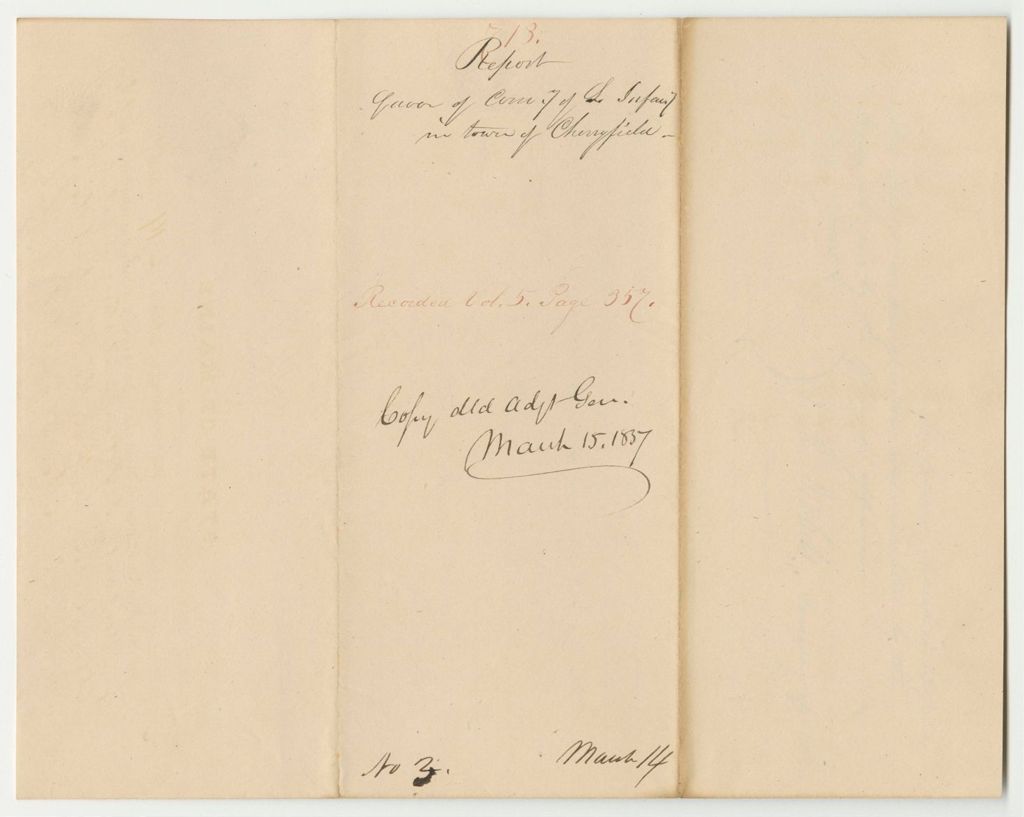 713.
Report
favor of Com'y of L Infan'y
in town of Cherryfield -
Recorded Vol. 5. Page 357.
Copy dld Adjt Gen.
March 15. 1837
No 3.
March 14